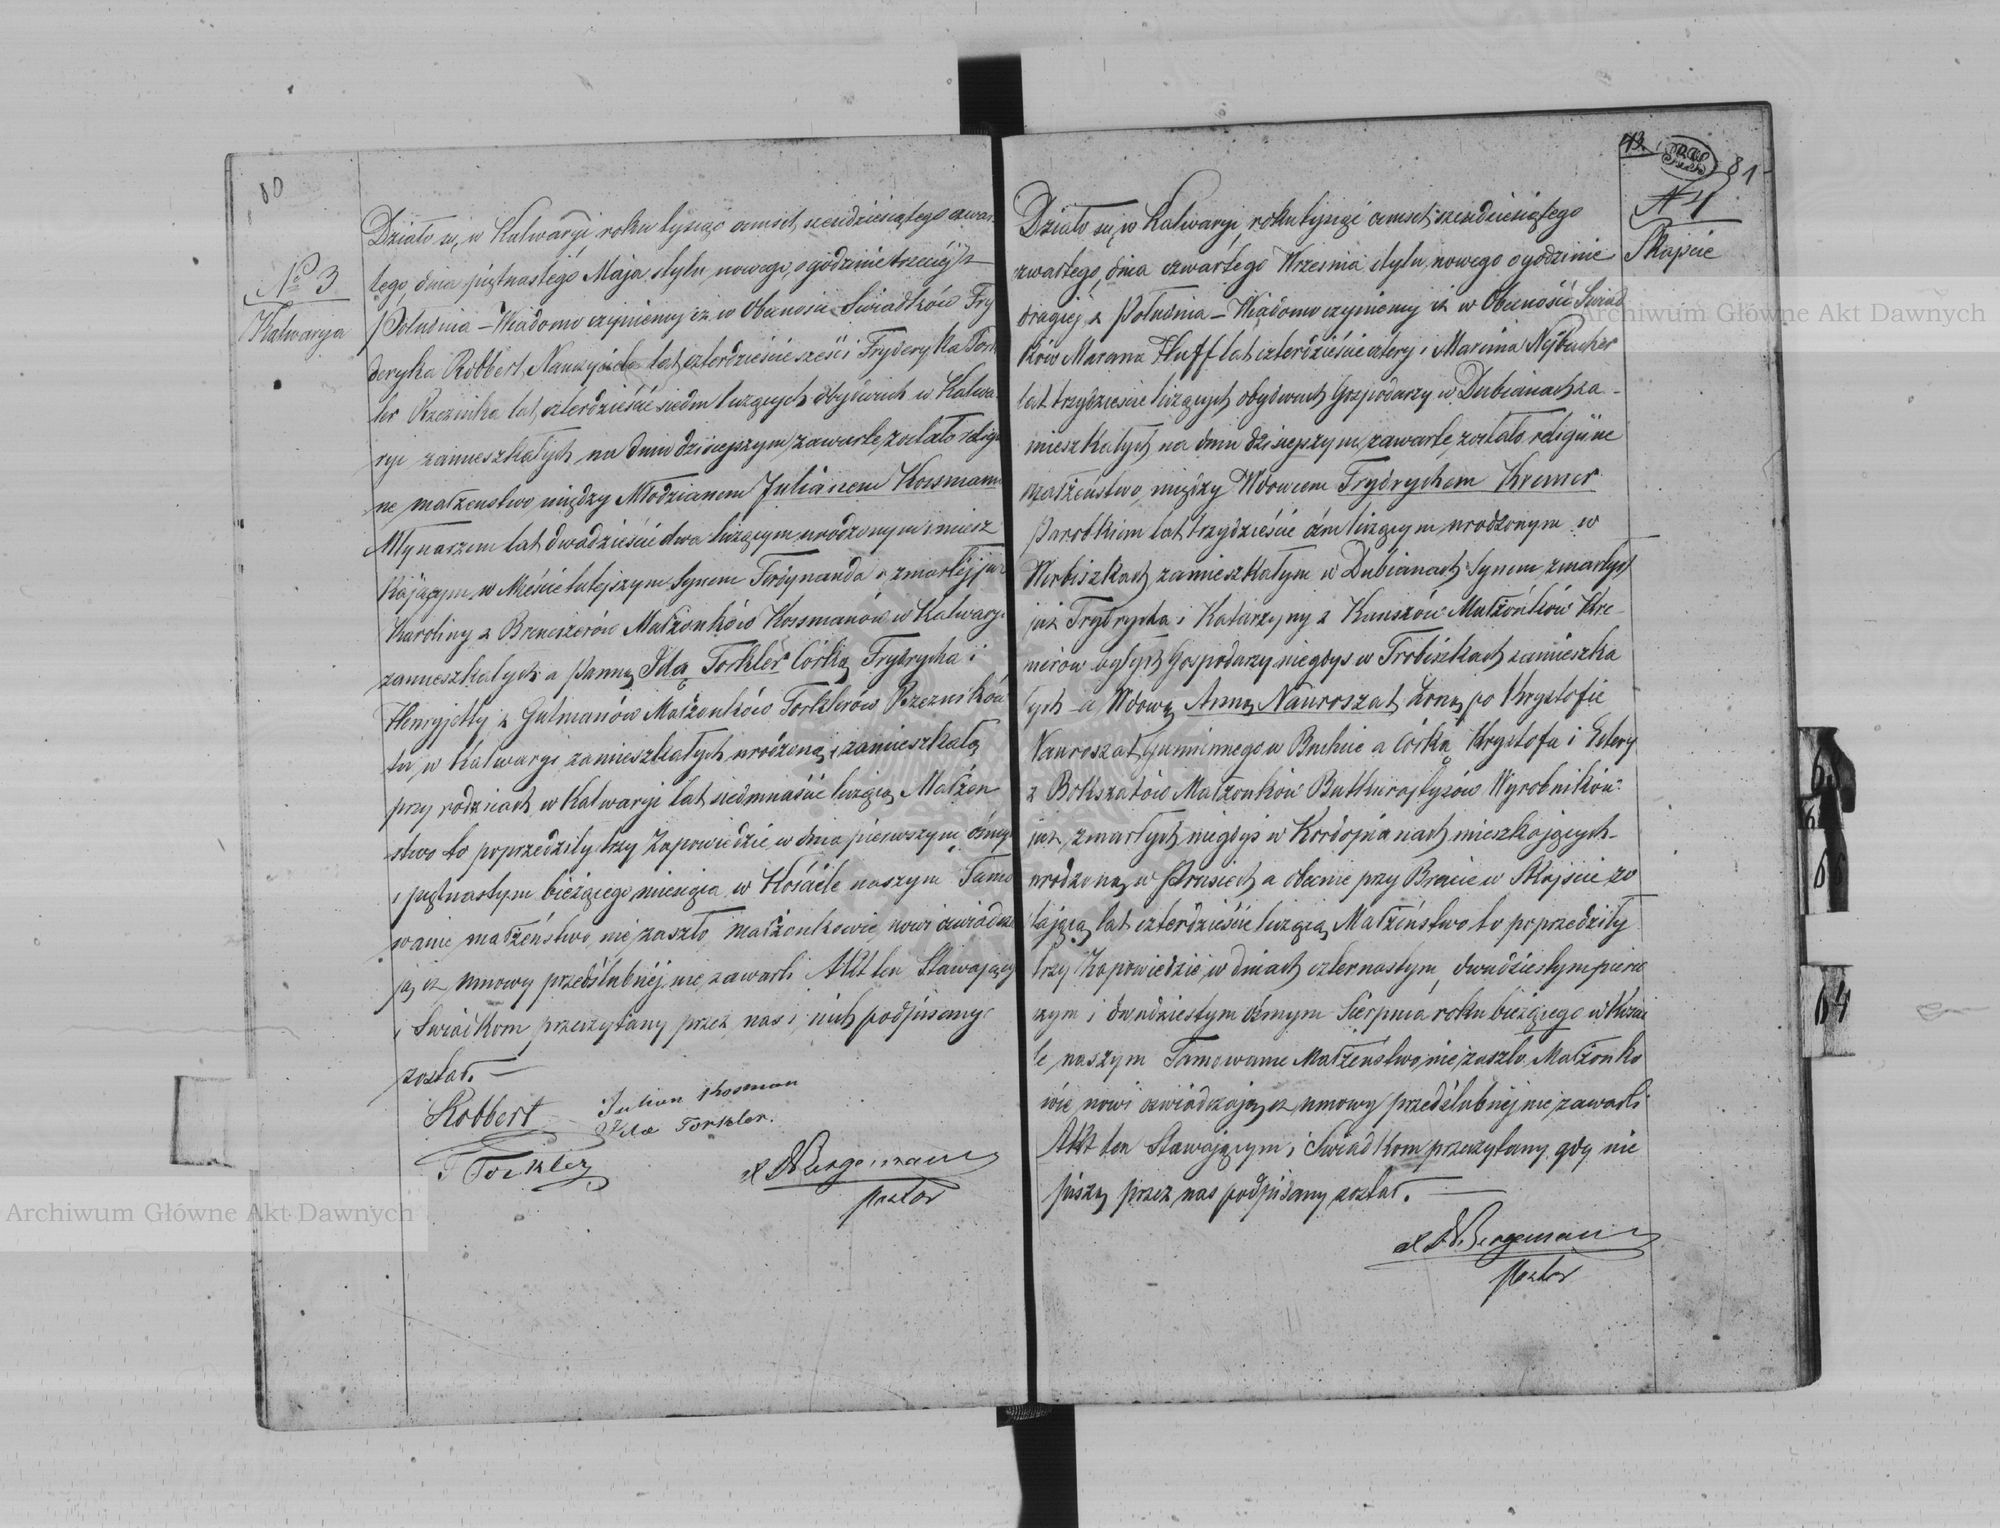 80
Nro 3
Kalwarya
Działo się w Kalwaryi roku tysiąc ośmset sześdziesiątego czwar
tego, dnia piętnastego Maja stylu nowego, o godzinie trzeciéj z
Południa – Wiadomo czyniemy iż w Obecności Świadków Fry
deryka Robbert, Nauczyciela lat czterdzieście sześć i Fryderyka Tork
ler Rzeznika lat czterdzieście siedm liczących obydwóch w Kalwa
ryi zamieszkałych na dniu dzisiejszym zawarte zostało religij
ne małżenstwo między Młodzianem Julianem Kossmann
Młynarzem lat dwadzieście dwa liczącym urodzonym i miesz
kającym w Mieście tutejszym Synem Ferdynanda i zmarłéj już
Karoliny z Małżonków Kossmanów w Kalwaryi
zamieszkałych a Panną Idą Torkler Córką Frydrycha i
Henryjetty z Gutmanów Małżonków Torklerów Rzezników
tu w Kalwaryi zamieszkałych urodzoną i zamieszkałą
przy rodzicach w Kalwaryi lat siedmnaście liczącą Małżeń
stwo to poprzedziły trzy Zapowiedzie w dniu pierwszym ósmym
i piętnastym bieżącego miesiąca w Kościele naszym Tamo
wanie małżeństwa nie zaszło małżonkowie nowi oświadcza
ją iż umowy przedślubnéj nie zawarli Akt ten Stawającym
i Świadkom przeczytany przez nas i nich podpisany
został. —
Robbert Julian Kossman
Ida Torkler.
F Torkler
Bergemann
pastor
43.
81
N 4
Skajście
Działo się w Kalwaryi, roku tysiąc ośmset sześdziesiątego
czwartego, dnia czwartego Września stylu nowego o godzinie
drugiéj z Południa – Wiadomo czyniemy iż w Obecności Świad
ków Huff lat czterdzieście cztery i Marcina Nejbucher
lat trzydzieście liczących obydwóch Gospodarzy w Dubianach za-
mieszkałych na dniu dzisiejszym zawarte zostało religijne
małżeństwo, między Wdowcem Frydrychem Kremer
Parobkiem lat trzydzieście ośm liczącym urodzonym w
Werbiszkach zamieszkałym w Dubianach Synem zmarłych
już Frydrycha i Katarzyny z Małżonków Kre-
merów byłych Gospodarzy niegdys w Trobiszkach zamieszka
łych – a Wdową Anną Nauroszat Żoną po Krystofie
Nauroszat w Buchcie a córką Krystofa i Estery
z Bokszatów Małżonków Wyrobników
już zmarłych niegdyś w mieszkających-
urodzoną w Prusiech a obecnie przy Bracie w Skajście zo
stającą lat czterdzieście liczącą Małżeństwo to poprzedziły
trzy Zapowiedzie w dniach czternastym, dwudziestym pierw
szym i dwudziestym ósmym Sierpnia roku bieżącego w Koscie
le naszym Tamowanie Małżeństwa nie zaszło, Małżonko
wie nowi oświadczają iż umowy przedślubnéj nie zawarli
Akt ten Stawającym i Świadkom przeczytany gdy nie
piszą przez nas podpisany został. —
Bergemann
pastor
64
Archiwum Główne Akt Dawnych
Archiwum Główne Akt Dawnych